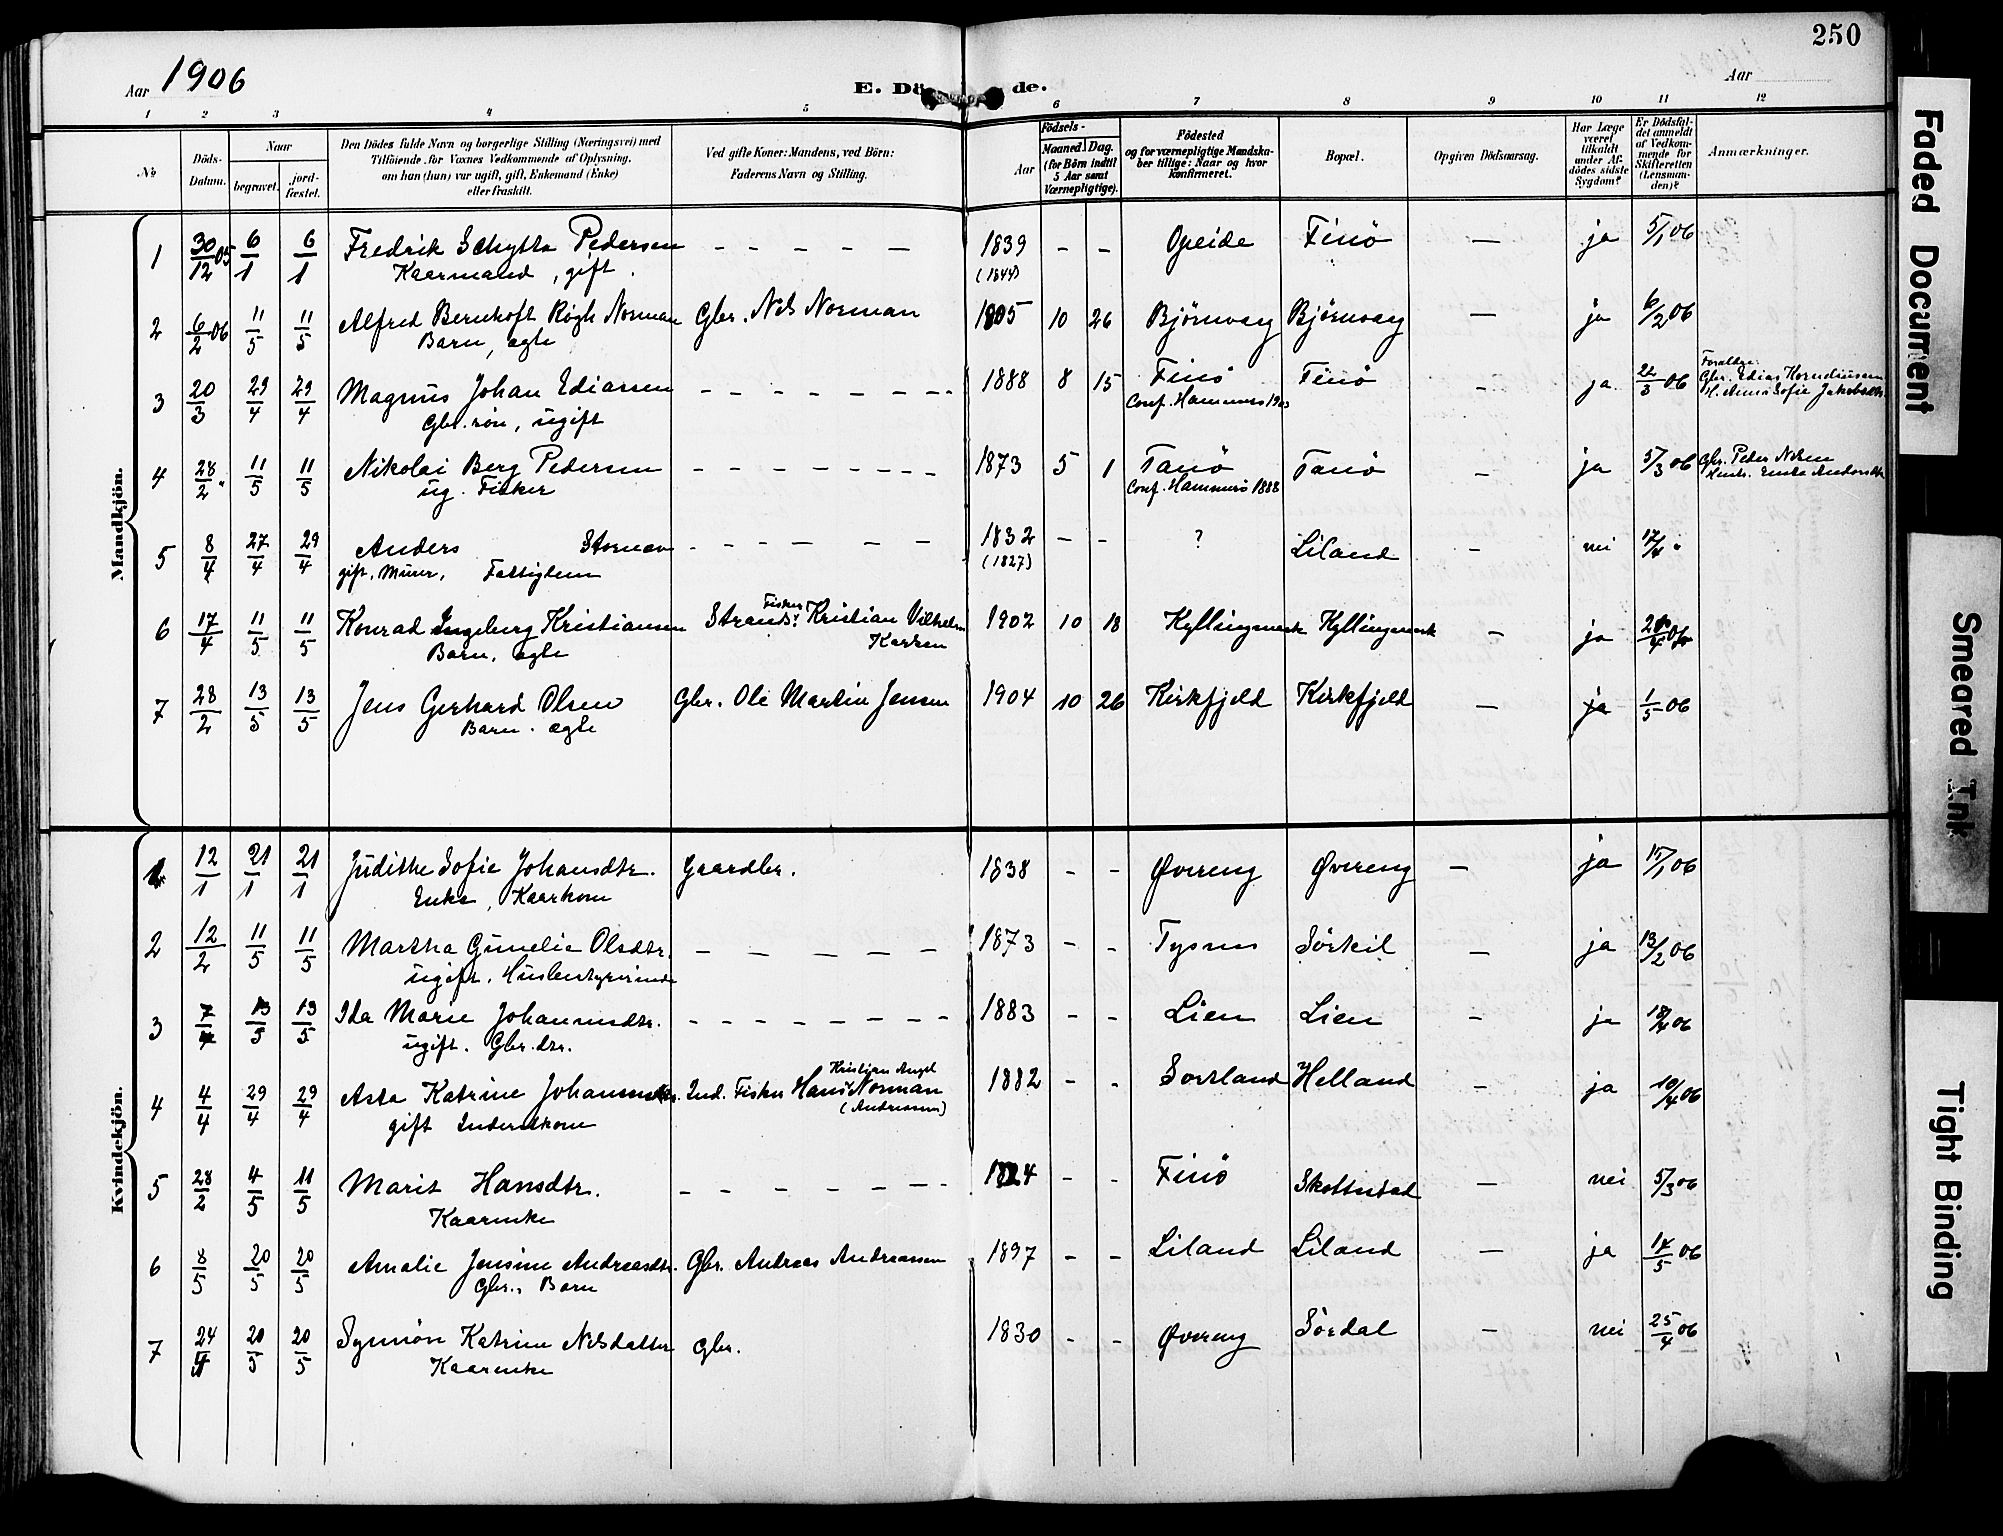 250
Aar 1906
E. Dö de.
Aar
1 2 3 4 5 6 7 8 9 10 11 12
No
Döds-Datum.
Naar
begravet.
jord-fæstet.
Den Dödes fulde Navn og borgerlige Stilling (Næringsvei) med
Tilföiende for Voxnes Vedkommende af Oplysning,
om han (hun) var ugift, gift, Enkemand (Enke)
eller fraskilt.
Ved gifte Koner: Mandens, ved Börn:
Faderens Navn og Stilling.
Födsels-
Aar
Maaned. Dag.
(for Börn indtil
5 Aar samt
Værnepligtige).
Födested
og for værnepligtige Mandska-
ber tillige: Naar og hvor
konfirmeret.
Bopæl.
Opgiven Dödsaarsag.
Har Læge
været
tilkaldt
under Af-
dödes sidste
Sygdom?
Er Dödsfal-
det anmeldt
af Vedkom-
mende for
Skifteretten
(Lensman-
den)?
Anmærkninger.
Mandkjön.
1 30/12 05 6/1 6/1 Fredrik Schytta Pedersen – – – – – 1839 – – Opeide Finö – ja 5/1 06
Kaarmand, gift. (1844)
2 6/2 06 11/5 11/5 Alfred Bernhoft Røgh Norman Gbr. Nils Norman 1905 10 26 Bjørnvag Bjørnvag – ja 6/2 06
Barn, ægte
3 20/3 29/4 29/4 Magnus Johan Ediassen – – – – – – – – 1888 8 15 Finö Finö – ja 22/3 06 Forældre: Gbr. Edias Korneliussen
Gbr. søn, ugift Conf. Hammerö 1903 H. Anna Sofie Jakobsdtr.
4 28/2 " 11/5 11/5 Nikolai Berg Pedersen – – – – – – – – 1873 5 1 Tanö Tanö – ja 5/3 06 Gbr. Peder Nilsen
ug. Fisker Conf. Hammerö 1888
5 8/4 27/4 29/4 Anders – – – – – – 1832 – – ? Liland – nei 17/4 "
gift, Murer, Fattiglem (1827)
6 17/4 11/5 11/5 Konrad Ingeberg Kristiansen Strands. Fisker Kristian Vilhelm 1902 10 18 Kyllingmark Kyllingmark – ja
Barn, ægte
7 28/2 13/5 13/5 Jens Gerhard Olsen Gbr. Ole Martin Jensen 1904 10 26 Kirkfjeld Kirkfjeld – ja 1/5 06
Barn. ægte
Kvindekjön.
1 12/1 21/1 21/1 Judithe Sofie Johansdtr. Gaardbr. 1838 – – Øvereng Øvereng – ja 15/1 06
Enke, Kaarkone
2 12/2 11/5 11/5 Martha Gunelie Olsdtr. – – – – – 1873 – – Tysnes Sörkil – ja 13/2 06
ugift. Husbestyrerinde
3 7/4 13/5 13/5 Ida Marie Johannesdtr. – – – – – – – – 1883 – – Lien Lien – ja 18/4 06
ugift. Gbr. dtr.
4 4/4 29/4 29/4 Asta Katrine Johannesdtr. Ind. Fisker Hans Kristian Angel Norman 1882 – – Sortland Helland – ja 10/4 06
gift Inderstkone (Andreassen)
5 28/2 4/5 11/5 Marit Hansdtr. – – – – – – – 1824 – – Finö Skottestad – nei 5/3 06
Kaarenke
6 8/5 20/5 20/5 Amalie Jensine Andreasdtr. Gbr. Andreas Andreassen 1897 – – Liland Liland – ja 14/5 06
Gbr., Barn
7 24/4 20/5 20/5 Synnön Katrine Nilsdatter Gbr. 1830 – – Øvereng Sördal – nei 25/4 06
Kaarenke
Faded Document
Smeared Ink
Tight Binding